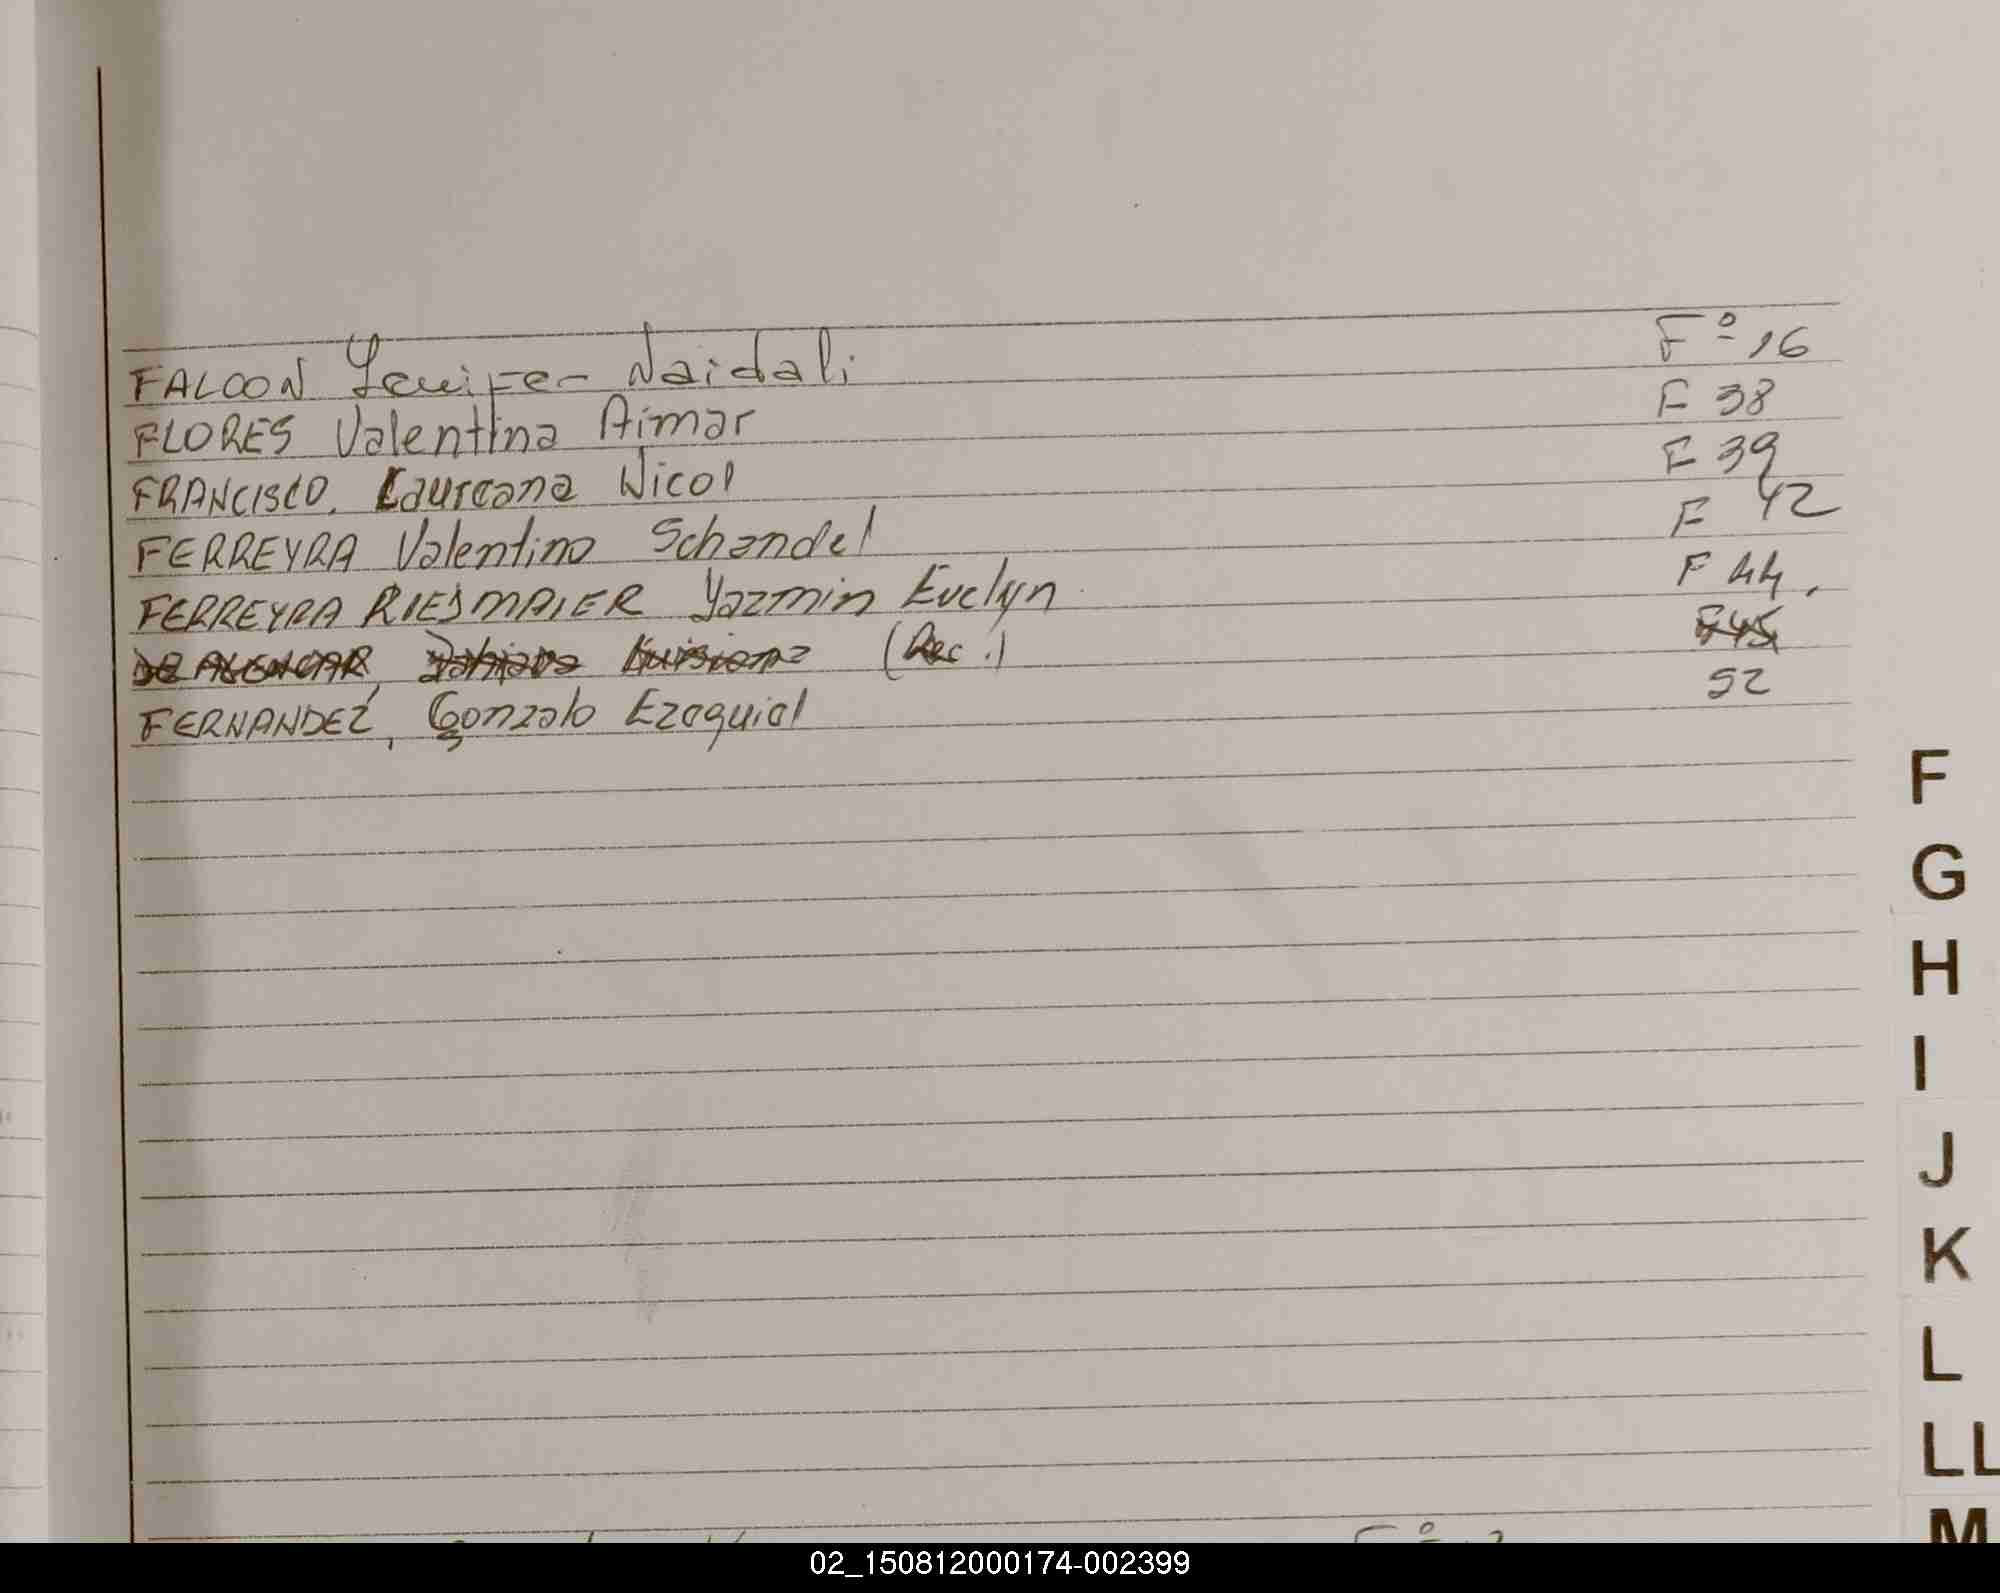 FALCON Yenifer Naidali F° 16
FLORES Valentina Aimar F 38
FRANCISCO, Laureana Nicol F 39
FERREYRA Valentino Schandel F 42
FERREYRA RIESMAIER Yazmin Evelyn F 44
DE ALENCAR, (Rec.) F45
FERNANDEZ, Gonzalo Ezequiel 52
F
G
H
I
J
K
L
LL
M
02_150812000174-002399